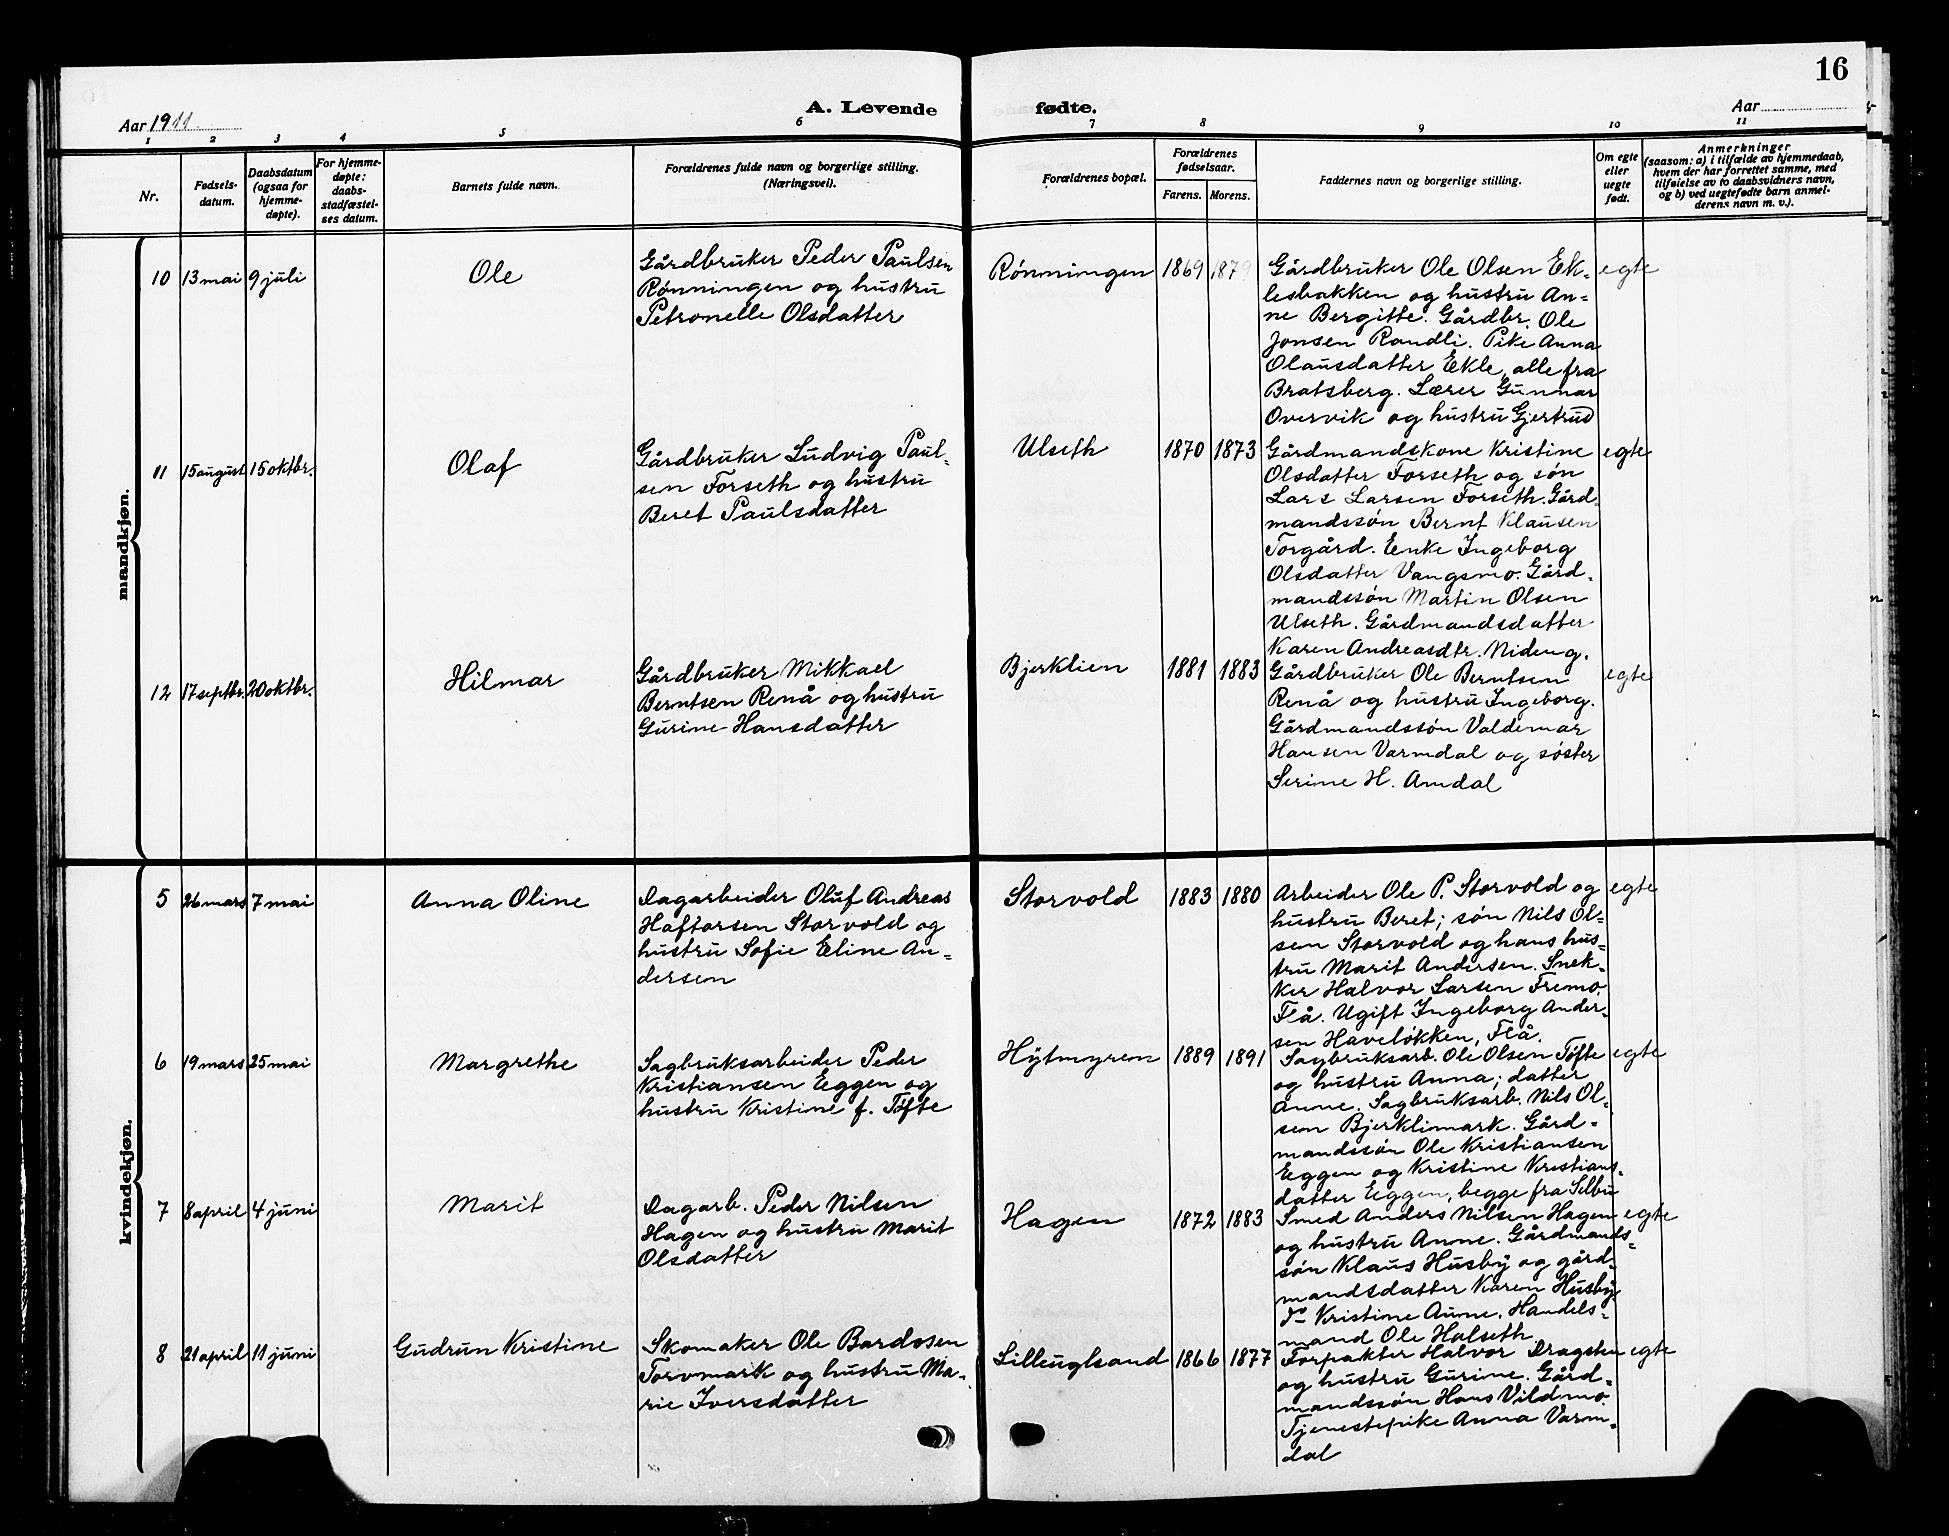 16
A. Levende fødte.
Aar 1911
Aar
1 2 3 4 5 6 7 8 9 10 11
Nr.
Fødsels-
datum.
Daabsdatum
(ogsaa for
hjemme-
døpte).
For hjemme-
døpte:
daabs-
stadfæstel-
ses datum.
Barnets fulde navn.
Forældrenes fulde navn og borgerlige stilling.
(Næringsvei).
Forældrenes bopæl.
Forældrenes
fødselsaar.
Farens. Morens.
Faddernes navn og borgerlige stilling.
Om egte
eller
uegte
født.
Anmerkninger
(saasom: a) i tilfælde av hjemmedaab,
hvem der har forrettet samme, med
tilføielse av to daabsvidners navn,
og b) ved uegtefødte barn anmel-
derens navn m. v.).
mandkjøn.
10 13 mai 9 juli
Ole
Gårdbruker Peder Paulsen
Rønningen og hustru
Petronelle Olsdatter
Rønningen
1869 1879
Gårdbruker Ole Olsen Ek-
lesbakken og hustru An-
ne Bergitte. Gårdbr. Ole
Jonsen Randli. Pike Anna
Olausdatter Ekle, alle fra
Bratsberg. Lærer Gunnar
Overvik og hustru Gjertrud
egte
11 15 august 15 oktbr.
Olaf
Gårdbruker Ludvig Paul-
sen Forseth og hustru
Beret Paulsdatter
Ulseth
1870 1873
Gårdmandskone Kristine
Olsdatter Forseth og søn
Lars Larsen Forseth. Gård
mandssøn Bernt Klausen
Torgård. Enke Ingeborg
Olsdatter Vangsmo. Gård-
mandssøn Martin Olsen
Ulseth. Gårdmandsdatter
Karen Andreasdtr. Nideng.
egte
12 17 septbr. 20 oktbr.
Hilmar
Gårdbruker Mikkael
Berntsen Renå og hustru
Gurine Hansdatter
Bjerklien
1881 1883
Gårdbruker Ole Berntsen
Renå og hustru Ingeborg.
Gårdmandssøn Valdemar
Hansen Varmdal og søster
Serine H. Amdal
egte
kvindekjøn.
5 26 mars 7 mai
Anna Oline
Dagarbeider Oluf Andreas
Haftorsen Storvold og
hustru Sofie Eline An-
dersen
Storvold
1883 1880
Arbeider Ole P. Storvold og
hustru Beret; søn Nils Ol-
sen Storvold og hans hus-
tru Marit Andersen. Snek-
ker Halvor Larsen Fremo.
Flå. Ugift Ingeborg Ander-
sen Haveløkken, Flå.
egte
6 19 mars 25 mai
Margrethe
Sagbruksarbeider Peder
Kristiansen Eggen og
hustru Kristine f. Tøfte
Hytmyren
1889 1891
Sagbruksarb. Ole Olsen Tøfte
og hustru Anna; datter
Anne. Sagbruksarb. Nils Ol-
sen Bjerklimark. Gård-
mandssøn Ole Kristiansen
Eggen og Kristine Kristians-
datter Eggen, begge fra Selbu
egte
7 8 april 4 juni
Marit
Dagarb. Peder Nilsen
Hagen og hustru Marit
Olsdatter
Hagen
1872 1883
Smed Anders Nilsen Hagen
og hustru Anne. Gårdmands-
søn Klaus Husby og gård-
mandsdatter Karen Husby.
Kristine Aune. Handels-
mand Ole Halseth
egte
8 21 april 11 juni
Gudrun Kristine
Skomaker Ole Bardosen
Torvmark og hustru Ma-
rie Iversdatter
Lilleuglsand
1866 1877
Forpakter Halvor Dragsten
og hustru Gurine. Gård-
mandssøn Hans Vildmo.
Tjenestepike Anna Varm-
dal
egte